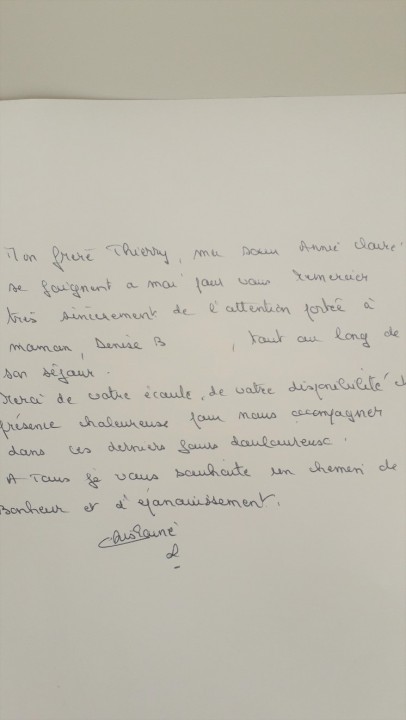 Mon frère Thierry, ma soeur Annie Claire
se joignent a moi pour vous remercier
très sincèrement de l'attention portée à
maman, Denise B , tout au long de
son séjour.
Merci de votre écoute, de votre disponibilité
présence chaleureuse pour nous accompagner
dans ces derniers jours douloureuse.
A Tous je vous souhaite un chemin de
Bonheur et d'épanouissement.
Ghislaine